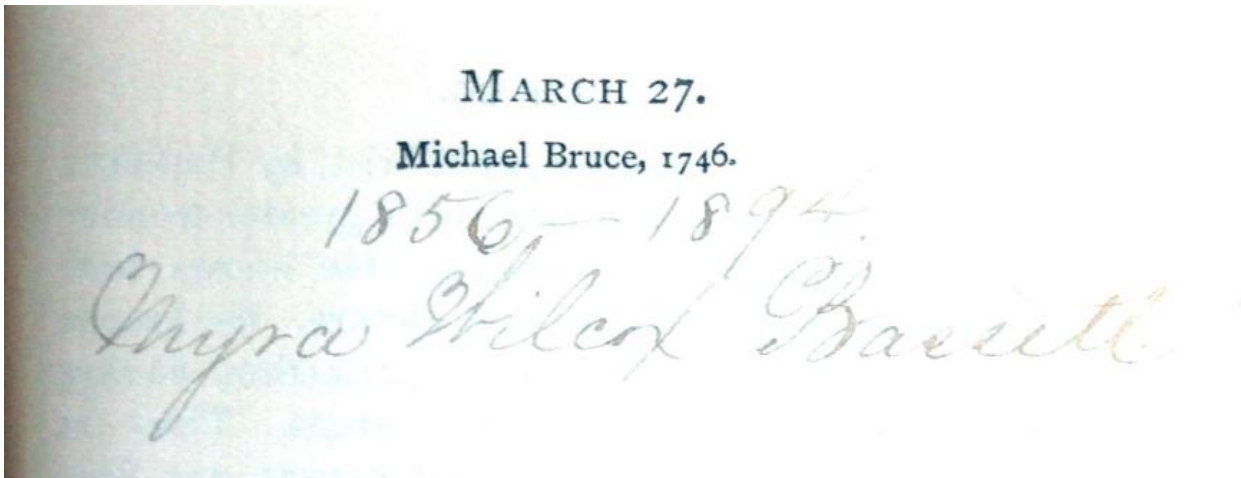 MARCH 27.
Michael Bruce, 1746.
1856 – 1894
Myra Wilcox Bassett